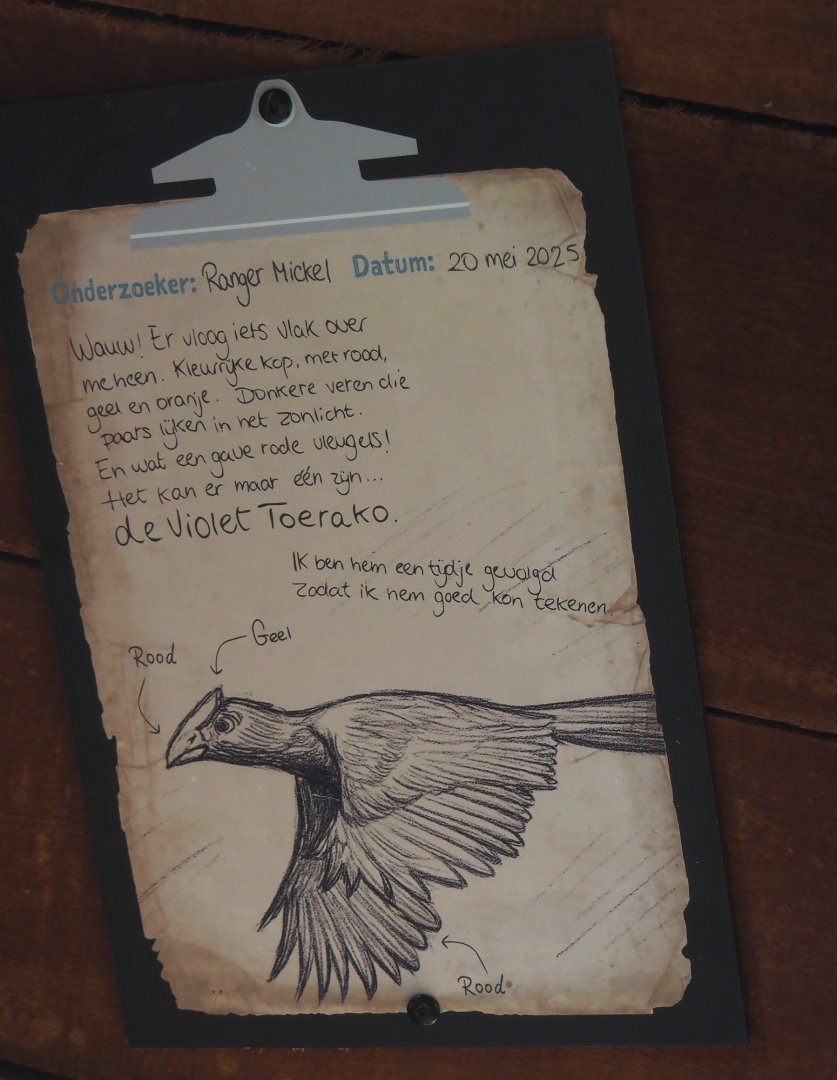 Onderzoeker: Ranger Mickel Datum: 20 mei 2025
Wauw! Er vloog iets vlak over
me heen. Kleurrijke kop, met rood,
geel en oranje. Donkere veren die
paars lijken in het zonlicht.
En wat een gave rode vleugels!
Het kan er maar één zijn...
de Violet Toerako.
Ik ben hem een tijdje gevolgd
zodat ik hem goed kon tekenen.
Geel
Rood
Rood